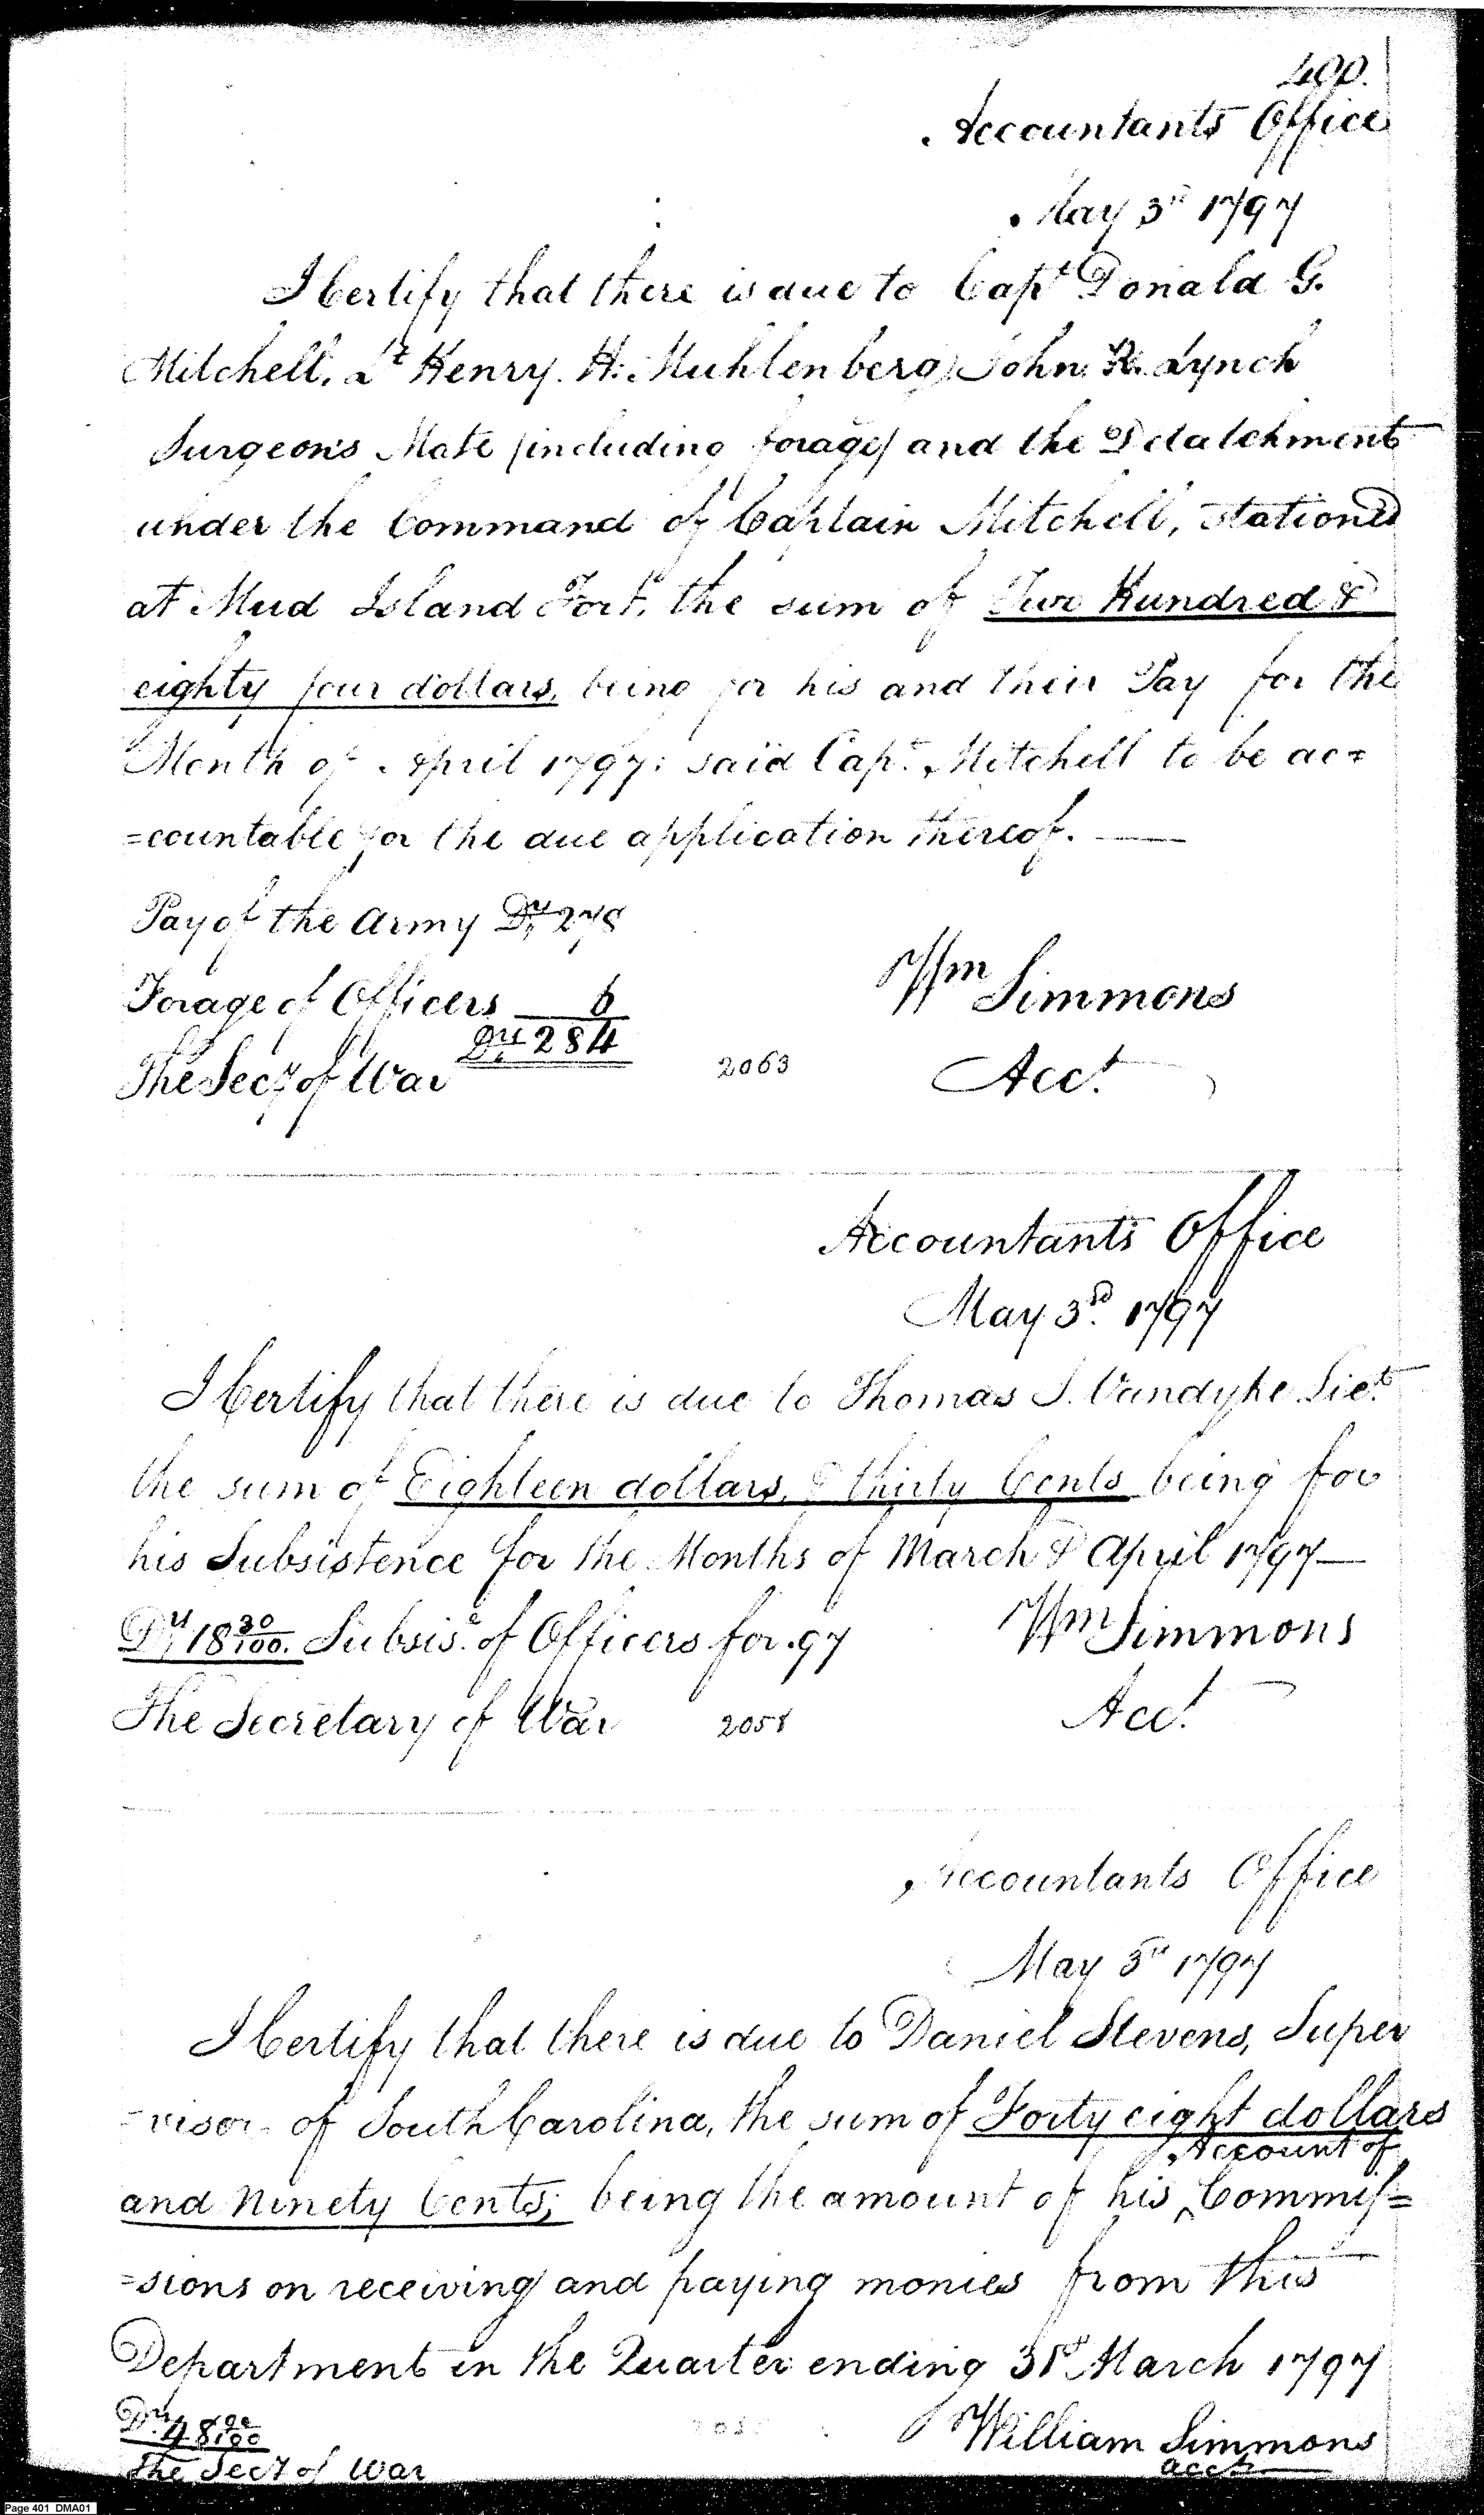 400.
Accountants Office
May 3rd 1797
I Certify that there is due to Capt Donald G.
Mitchell, Lt Henry. H. Muhlenberg, John R. Lynch
Surgeons Mate (including forage) and the Detatchment
under the Command of Captain Mitchell, stationed
at Mud Island Fort, the sum of Two Hundred &
eighty four dollars, being for his and their Pay for the
Month of April 1797: said Capt. Mitchell to be ac=
=countable for the due application thereof. —
Pay of the Army Drs 278
Forage of Officers 6
Drs 284
Wm Simmons
The Secy of War 2063 Acct.
Accountants Office
May 3rd. 1797
I Certify that there is due to Thomas J. Vandyke Liet.
the sum of Eighteen dollars, & thirty Cents being for
his Subsistence for the Months of March & April 1797—
Drs 18 30/100. Subsis.e of Officers for .97 Wm Simmons
The Secretary of War 2058 Acct.
Accountants Office
May 3rd 1797
I Certify that there is due to Daniel Stevens, Super
=visor of South Carolina, the sum of Forty eight dollars
Account of
and Ninety Cents; being the amount of his ^ Commis=
=sions on receiving and paying monies from this
Department in the Quarter ending 31st March 1797
Drs. 48 90/100 William Simmons
The Secy of War acct.
Page 401 DMA01